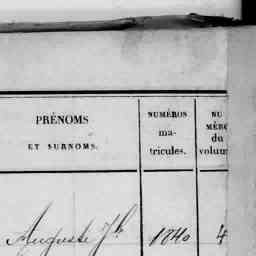 PRÉNOMS
ET SURNOMS.
NUMÉROS
ma-
tricules.
NU
MÉRO
du
volum
Auguste Jh 1840 4